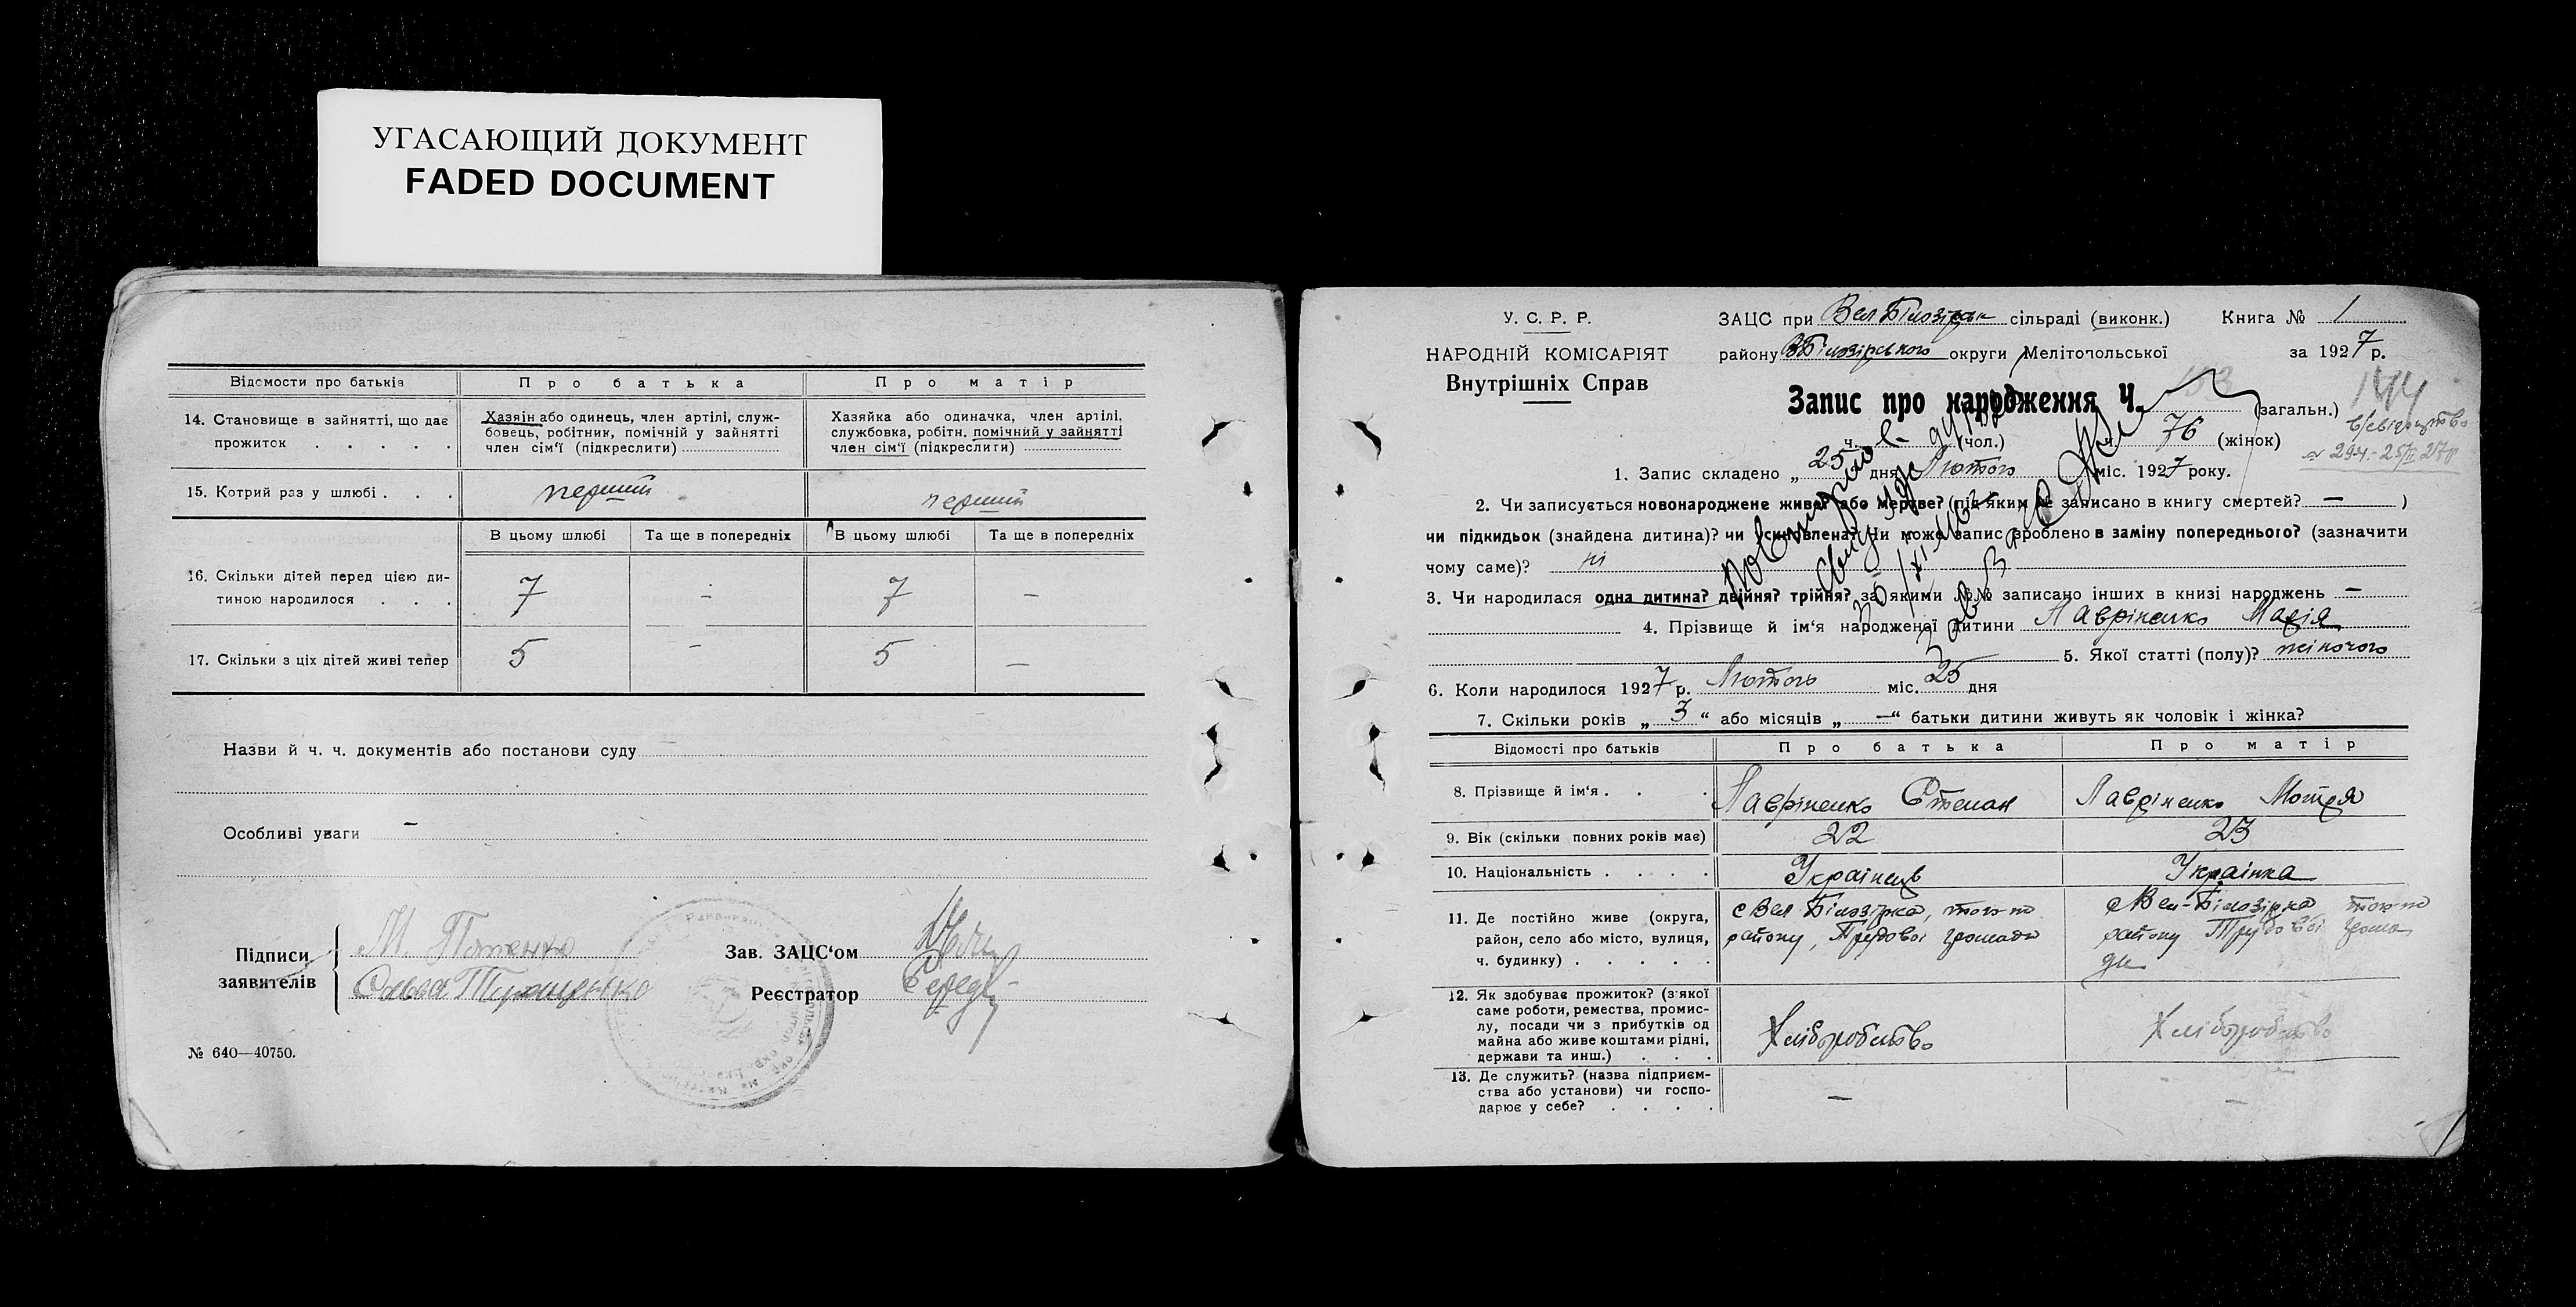 УГАСАЮЩИЙ ДОКУМЕНТ
FADED DOCUMENT
Відомости про батьків
Про батька
Про матір
14. Становище в зайнятті, що дає
прожиток . . . . .
Хазяін або одинець, член артілі, служ-
бовець, робітник, помічній у зайнятті
член сім'ї (підкреслити)
Хазяйка або одиначка, член артілі,
службовка, робітн. помічний у зайнятті
член сім'ї (підкреслити)
15. Котрий раз у шлюбі . . .
перший
перший
В цьому шлюбі
Та ще в попередніх
В цьому шлюбі
Та ще в попередніх
16. Скільки дітей перед цією ди-
тиною народилося . . .
7 - 7 -
17. Скільки з ціх дітей живі тепер
5 - 5 -
Назви й ч. ч. документів або постанови суду
Особливі уваги —
Підписи
заявителів
М.
Ольга
Зав. ЗАЦС'ом
Реєстратор
№ 640—40750.
У. С. Р. Р.
НАРОДНІЙ КОМІСАРІЯТ
Внутрішніх Справ
ЗАЦС при Вел Білозірськ сільраді (виконк.) Книга № 1
району ВБілозірського округи Мелітопольської за 1927 р.
Запис про народження Ч. 153 (загальн.)
144
ч. (чол.) ч. 76 (жінок)
№ 294-25/II 27р
1. Запис складено „25" дня Лютого міс. 1927 року.
2. Чи записується новонароджене живе? або мертве? (під яким № записано в книгу смертей? — )
чи підкидьок (знайдена дитина)? чи усиновлена? Чи може запис зроблено в заміну попереднього? (зазначити
чому саме)? ні
3. Чи народилася одна дитина? двійня? трійня? за якими №№ записано інших в книзі народжень —
4. Прізвище й ім'я народженої дитини Лавріненко Марія
5. Якої статті (полу)? жіночого
6. Коли народилося 1927 р. Лютого міс. 25 дня
7. Скільки років „3" або місяців „—" батьки дитини живуть як чоловік і жінка?
Відомості про батьків
Про батька
Про матір
8. Прізвище й ім'я . . .
Лавріненко Степан
Лавріненко Мотря
9. Вік (скільки повних років має)
22
23
10. Національність . . . .
Українець
Українка
11. Де постійно живе (округа,
район, село або місто, вулиця,
ч. будинку) . . . . .
с Вел Білозірка, того-ж
району, Трудової громади
с Вел-Білозірка того-ж
району Трудової грома
ди
12. Як здобуває прожиток? (з якої
саме роботи, ремества, промис-
лу, посади чи з прибутків од
майна або живе коштами рідні,
держави та инш.) . . .
Хліборобство
Хліборобство
13. Де служить? (назва підприєм-
ства або установи) чи госпо-
дарює у себе? . . . .
—
—